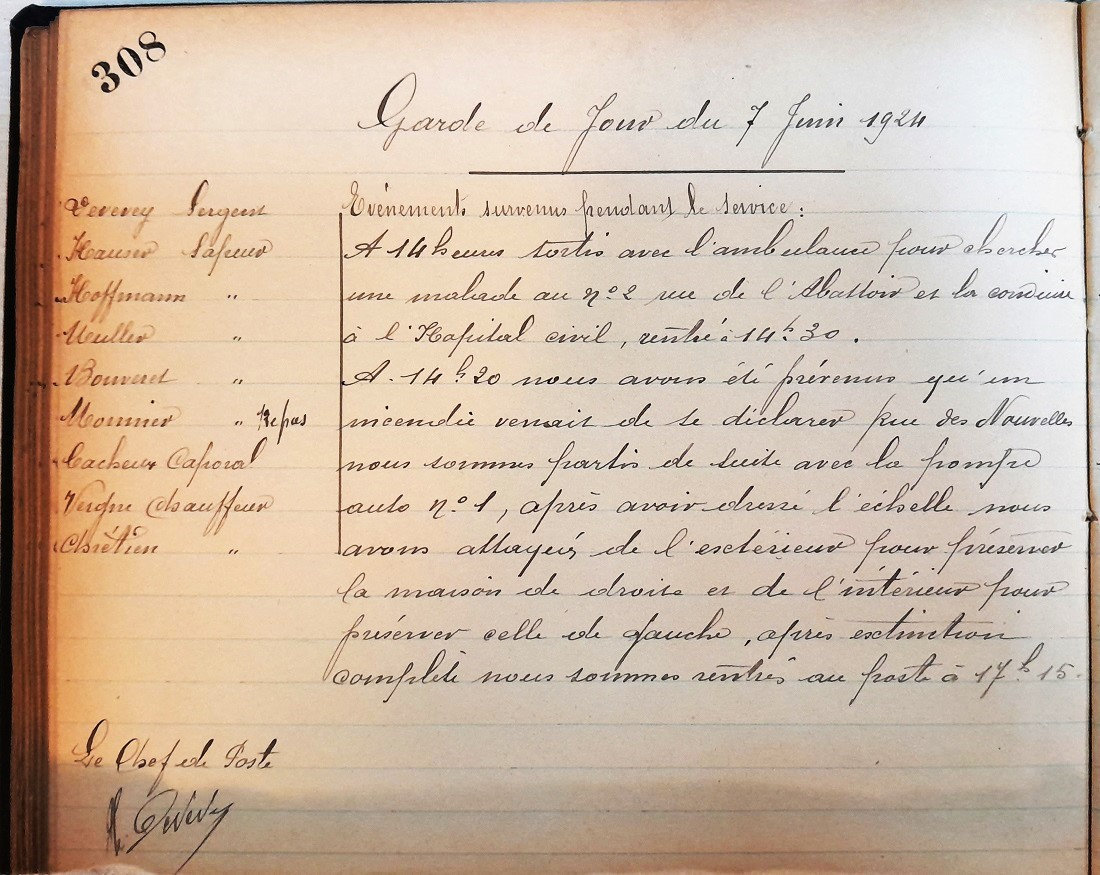 308
Garde de Jour du 7 Juin 1924
Devevey Sergent
Hauser Sapeur
Hoffmann "
Muller "
Bouveret "
Monnier " Repas
Cacheux Caporal
Vergne Chauffeur
Chrétien "
Evénements survenus pendant le service :
A 14 heures sortis avec l'ambulance pour chercher
une malade au nº 2 rue de l'Abattoir et la conduire
à l'Hôpital civil, rentré à 14h 30.
A 14h 20 nous avons été prévenus qu'un
incendie venait de se déclarer Rue des Nouvelles
nous sommes partis de suite avec la pompe
auto nº 1, après avoir dressé l'échelle nous
avons attaqués de l'extérieur pour préserver
la maison de droite et de l'intérieur pour
préserver celle de gauche, après exctinction
complète nous sommes rentrés au poste à 17h 15.
Le Chef de Poste
Devevey